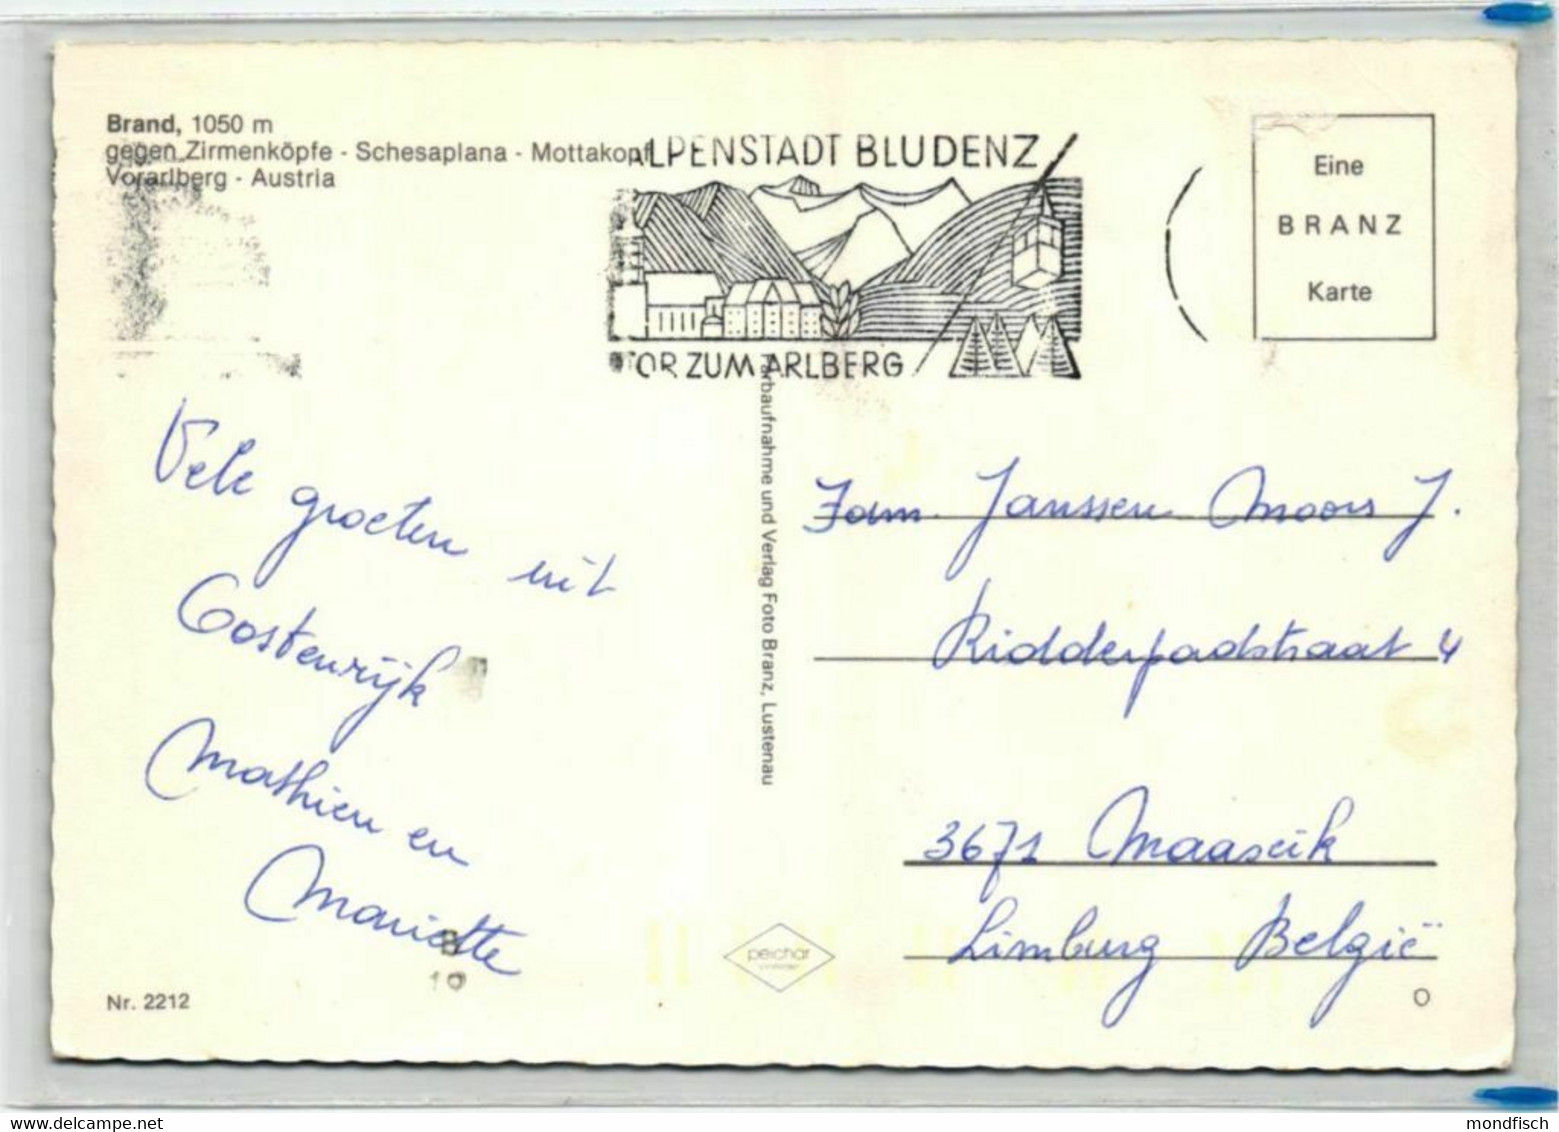 Brand, 1050 m
gegen Zirmenköpfe - Schesaplana - Mottakopf
Vorarlberg - Austria
ALPENSTADT BLUDENZ
TOR ZUM ARLBERG
Eine
BRANZ
Karte
Vele groeten uit
Oostenrijk
Mathieu en
Mariette
Farbaufnahme und Verlag Foto Branz, Lustenau
Fam. Janssen Moors J.
Ridderpadstraat 4
3671 Maaseik
Limburg België
B
10
peichär
Nr. 2212
O
www.delcampe.net
mondfisch